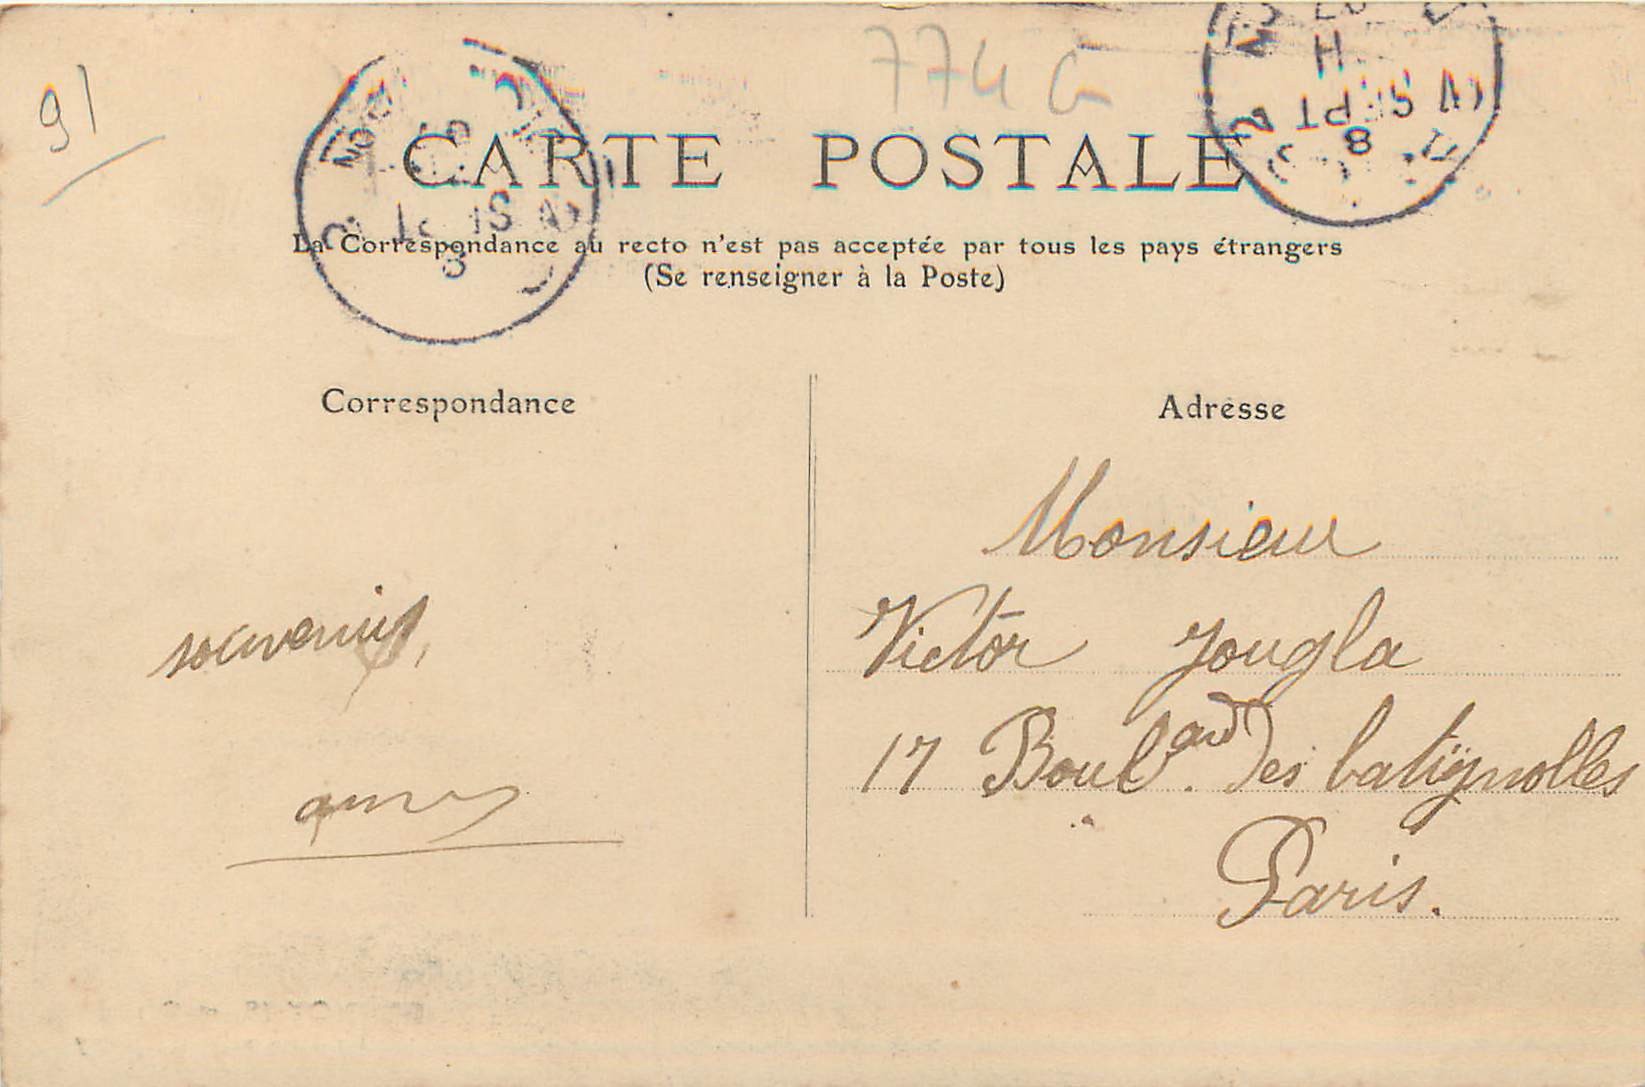 91
774 G
CARTE POSTALE
La Correspondance au recto n'est pas acceptée par tous les pays étrangers
(Se renseigner à la Poste)
Correspondance
Adresse
souvenirs,
Monsieur
Victor Jougla
17 Boul.ard des batignolles
Paris.
SEPT
8